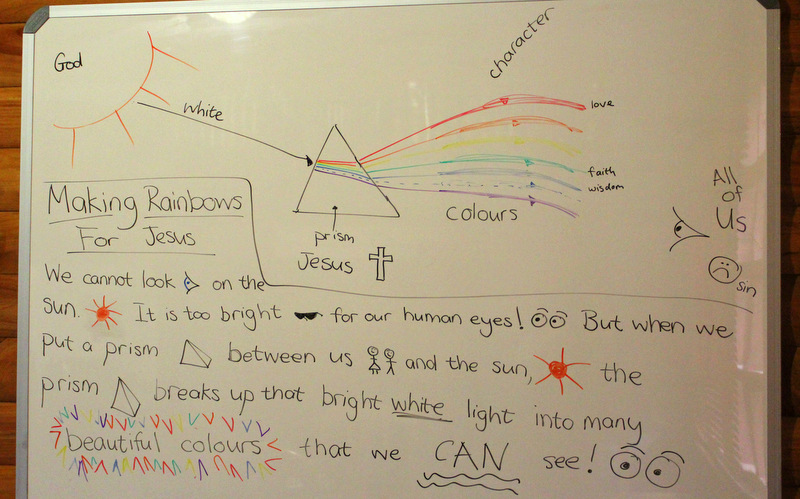 God
white
character
love
faith
wisdom
colours
prism
Jesus
All
of
Us
sin
Making Rainbows
For Jesus
We cannot look on the
sun. It is too bright for our human eyes! But when we
put a prism between us and the sun, the
prism breaks up that bright white light into many
7 beautiful colours that we CAN see!